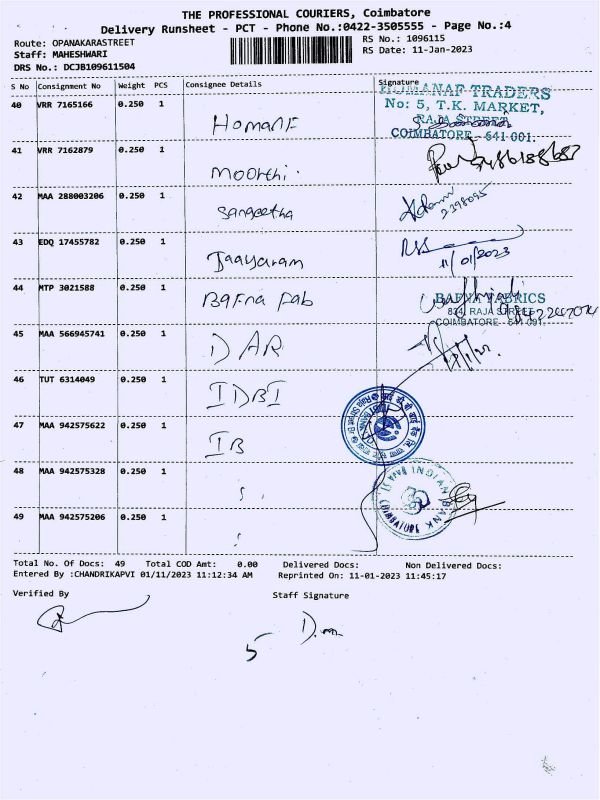 THE PROFESSIONAL COURIERS, Coimbatore
Delivery Runsheet - PCT - Phone No.:0422-3505555 - Page No.:4
Route: OPANAKARASTREET
Staff: MAHESHWARI
DRS No.: DCJB109611504
RS No.: 1096115
RS Date: 11-Jan-2023
S No Consignment No Weight PCS Consignee Details Signature
40 VRR 7165166 0.250 1
TRADERS
No: 5, T.K. MARKET,
RAJA STREET
COIMBATORE - 641 001.
41 VRR 7162879 0.250 1 Moorthi.
42 MAA 288003206 0.250 1 Sangeetha
2398095
43 EDQ 17455782 0.250 1 Jaayaram
11/01/2023
44 MTP 3021588 0.250 1 Bafna Fab
BAFNA FABRICS
834, RAJA STREET
COIMBATORE - 641 001.
45 MAA 566945741 0.250 1 DAR
46 TUT 6314049 0.250 1 IDBI
47 MAA 942575622 0.250 1 IB
48 MAA 942575328 0.250 1
INDIAN BANK
COIMBATORE
49 MAA 942575206 0.250 1
Total No. Of Docs: 49 Total COD Amt: 0.00 Delivered Docs: Non Delivered Docs:
Entered By :CHANDRIKAPVI 01/11/2023 11:12:34 AM Reprinted On: 11-01-2023 11:45:17
Verified By Staff Signature
5